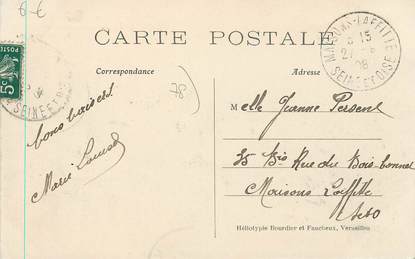 6-6
CARTE POSTALE
Correspondance
Adresse
MAISONS-LAFFITTE
8 15
SEINE ET OISE
POSTES
5c
SEINE ET OISE
78
bons baisers
Marie Louise
Melle Jeanne Persent
35 Bis Rue du Bois bonnet
Maisons Laffitte
Héliotypie Bourdier et Faucheux, Versailles